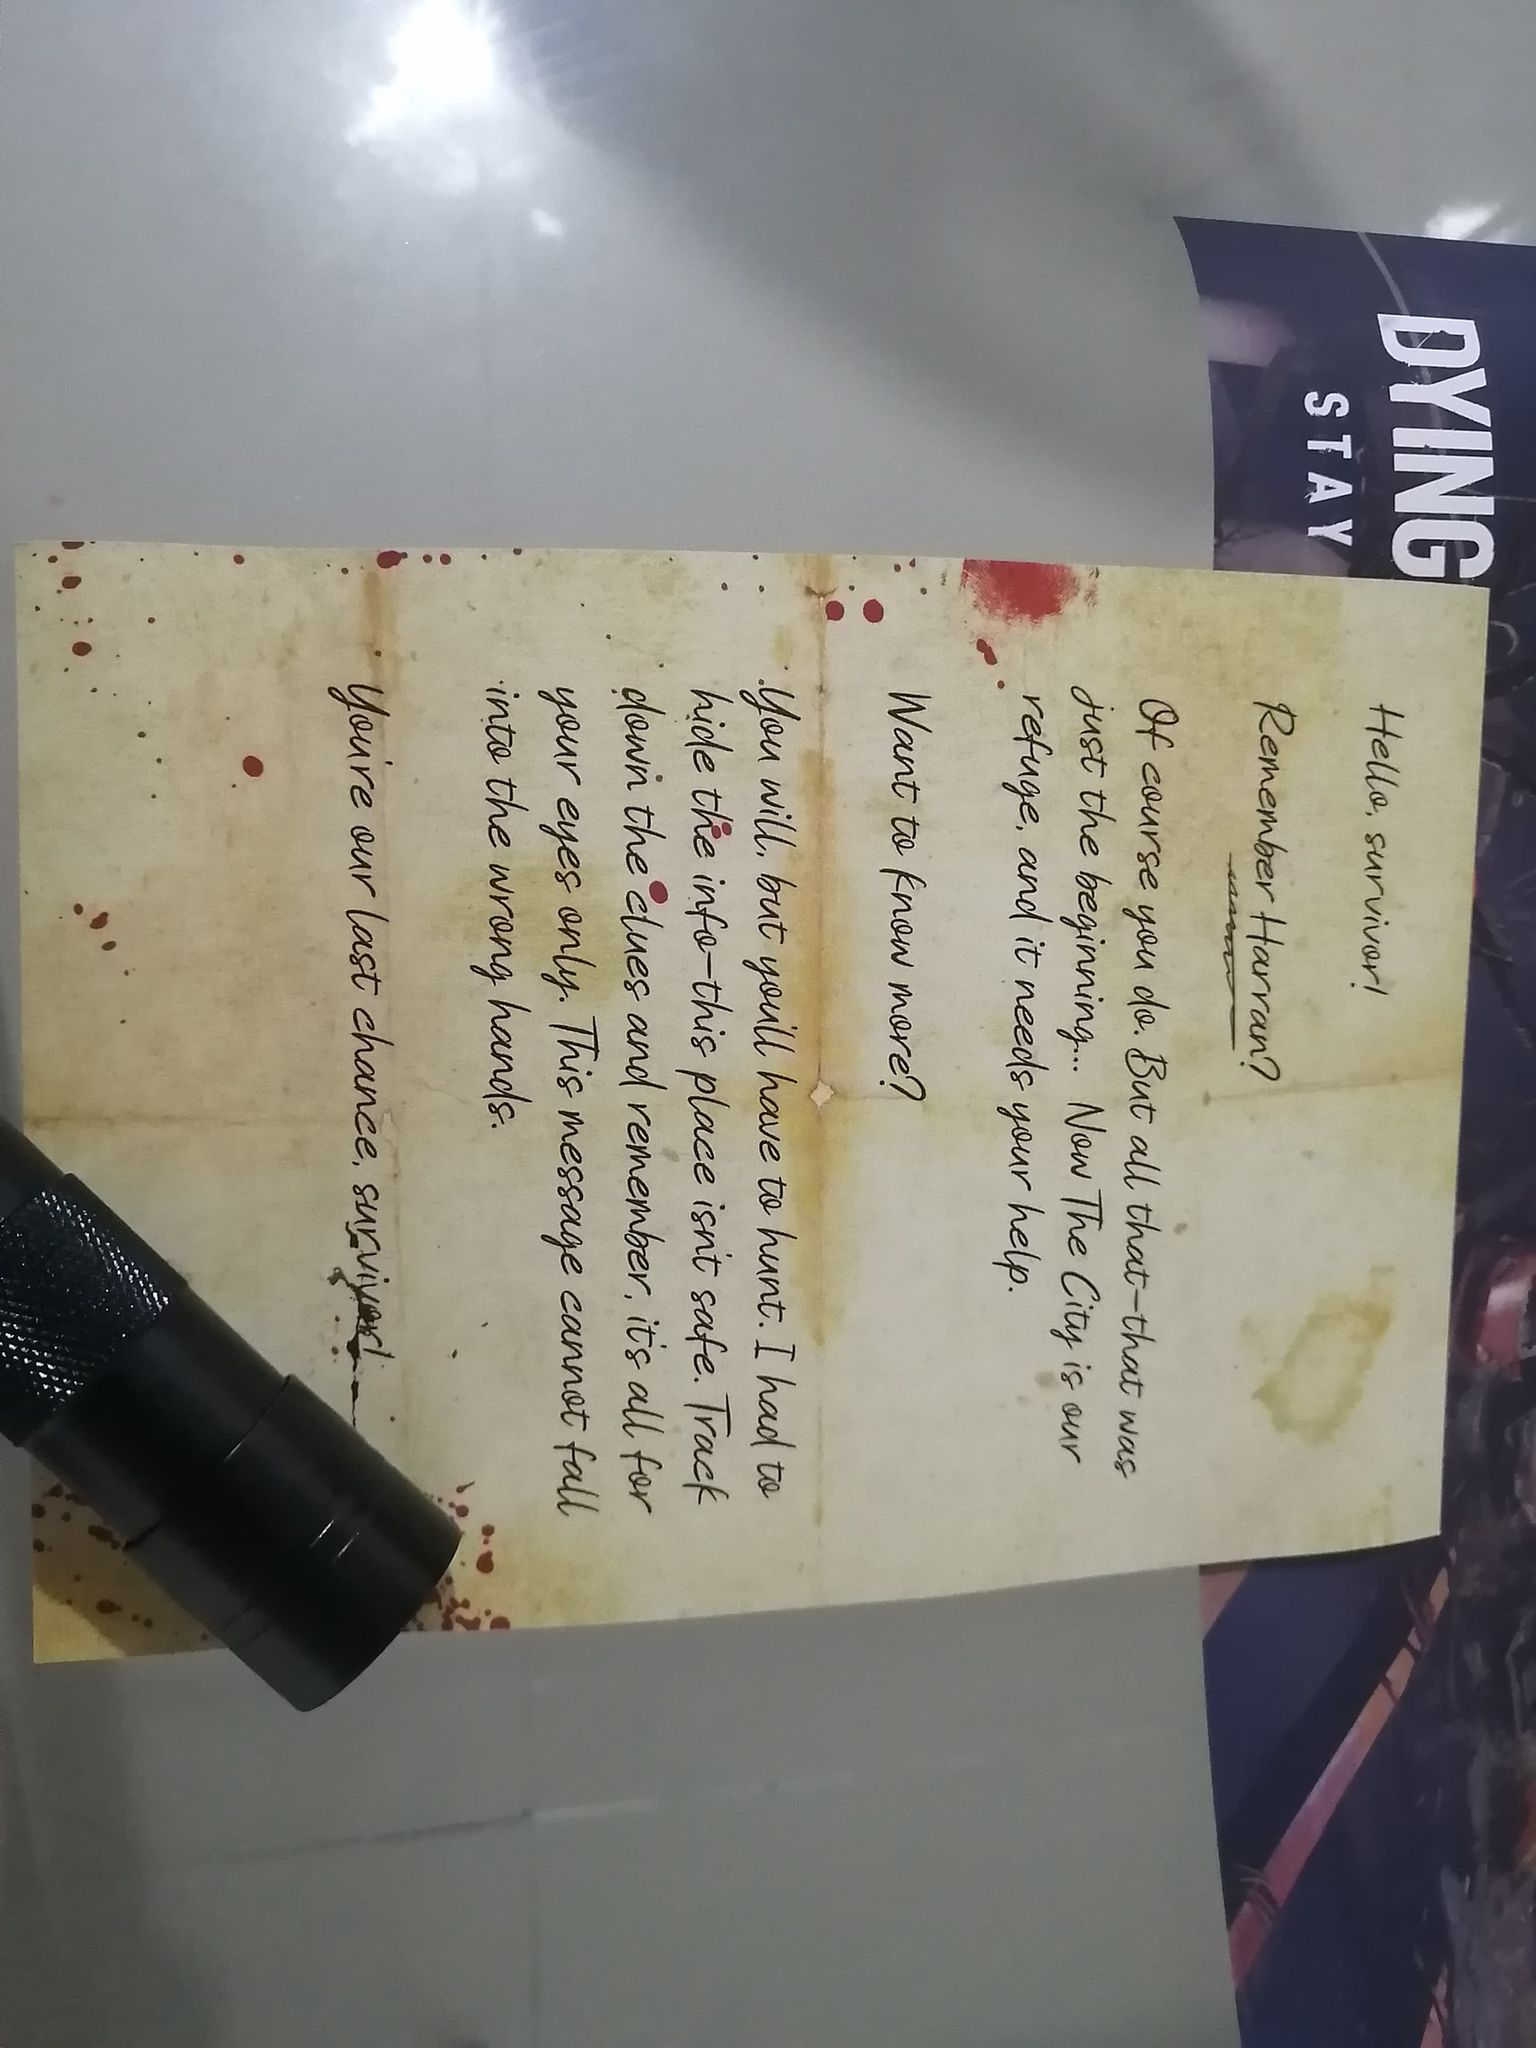 DYING
STAY
Hello, survivor!
Remember Harran?
Of course you do. But all that—that was
just the beginning... Now The City is our
refuge, and it needs your help.
Want to know more?
You will, but you'll have to hunt. I had to
hide the info—this place isn't safe. Track
down the clues and remember, it's all for
your eyes only. This message cannot fall
into the wrong hands.
You're our last chance, survivor!